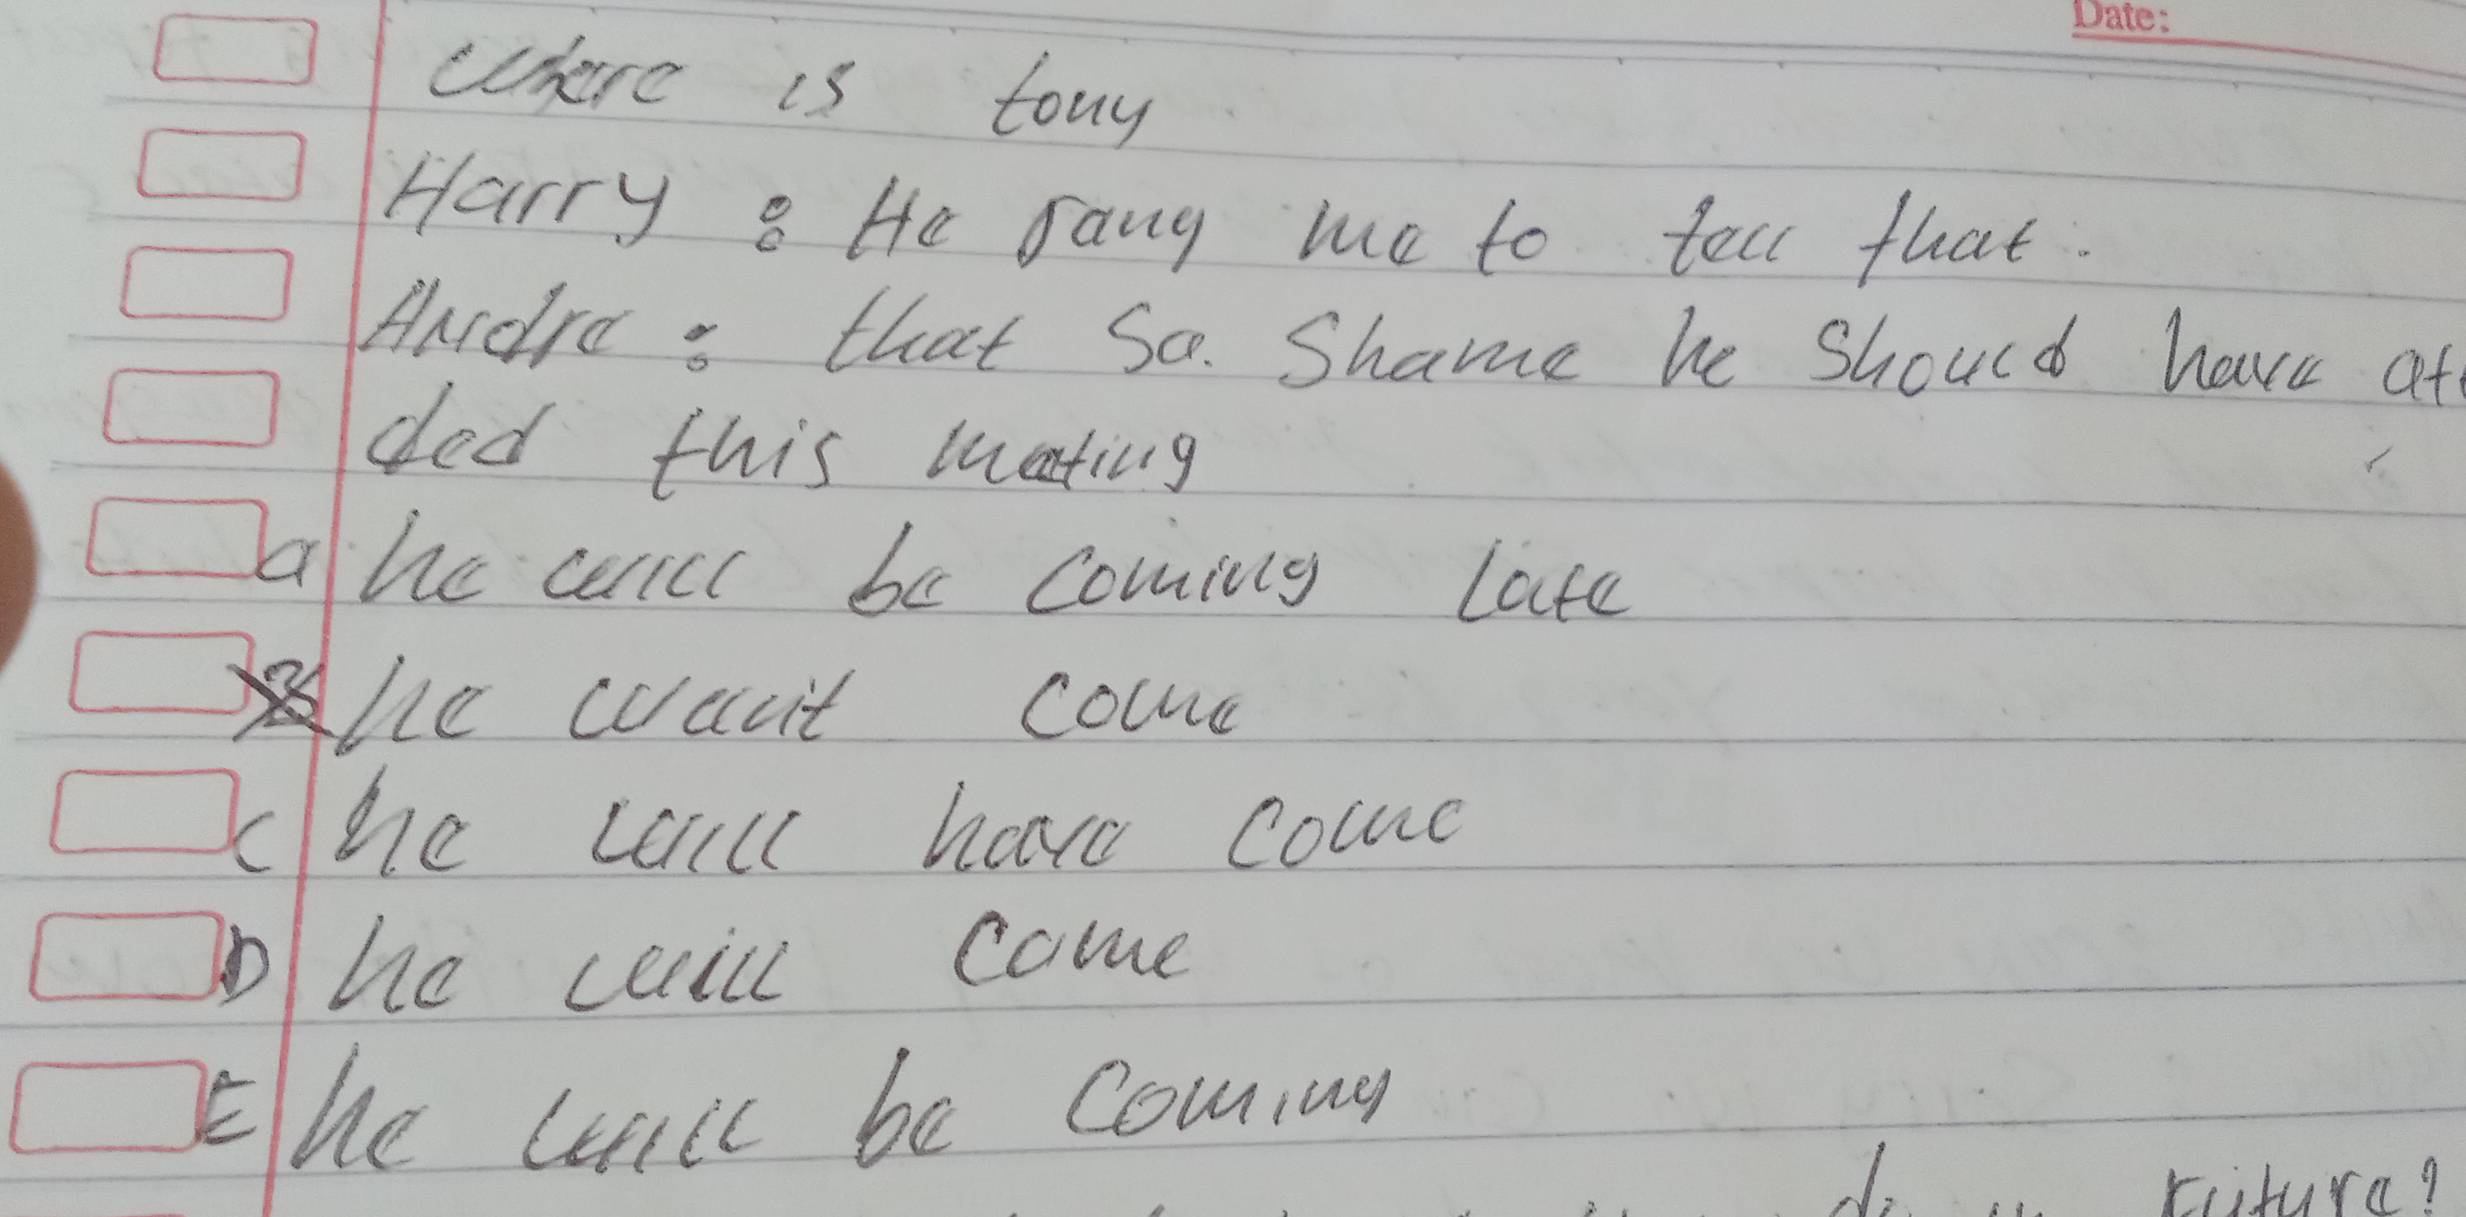 Date:
Where is tony
Harry : He rang me to tell that.
Andre : that Sa. Shame he Should have att
ded this mating
a he will be coming Late
B he wont come
C he will have come
D he will come
E he will be coming
future?